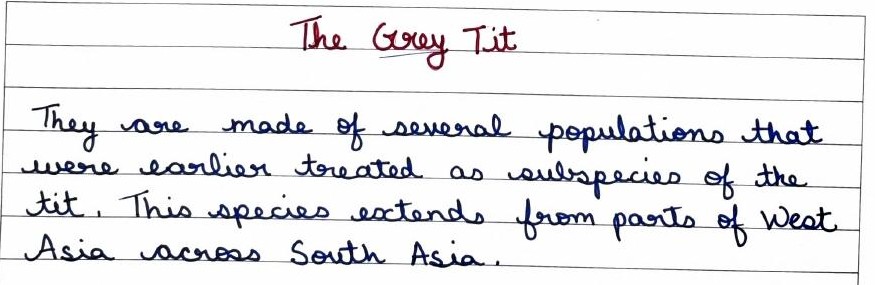 The Grey Tit
They are made of several populations that
were earlier treated as subspecies of the
tit. This species extends from parts of West
Asia across South Asia.